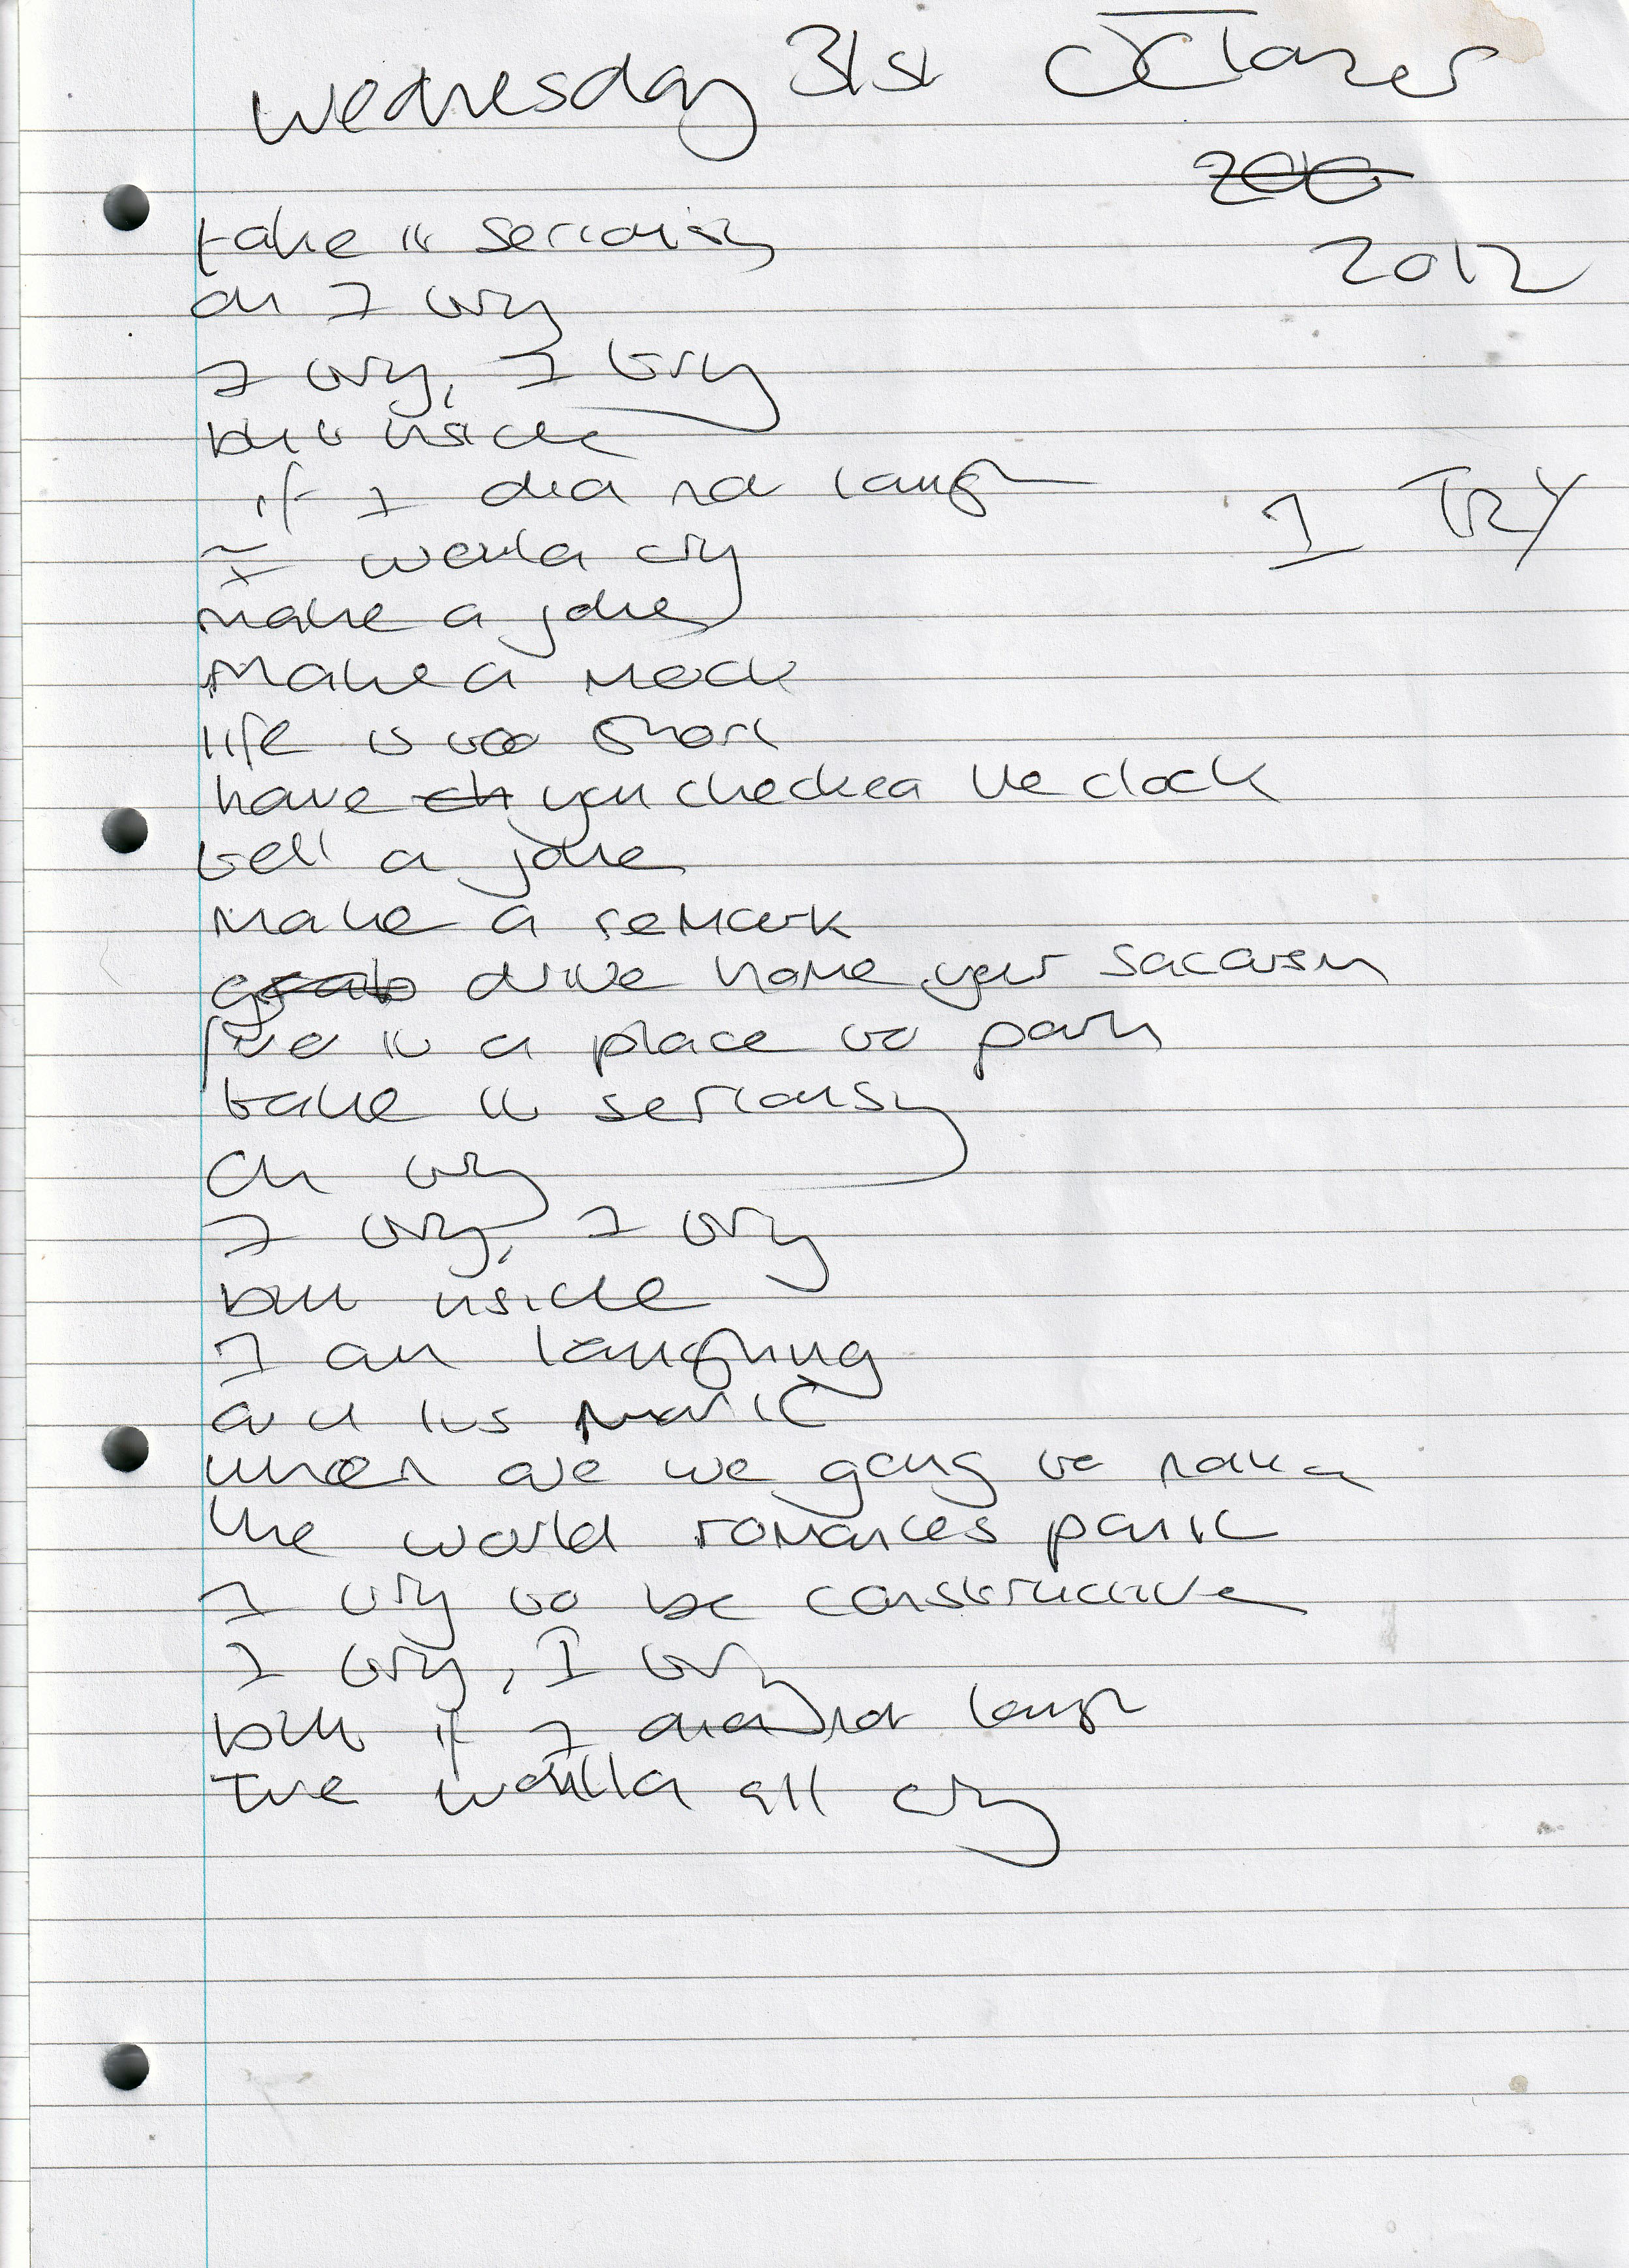 Wednesday 31st October
2012
take it seriously
oh I try
I try, I try
but inside
if I did not laugh
I TRY
I would cry
make a joke
make a mock
life is too short
have you checked the clock
tell a joke
make a remark
drive home your sacarsm
find it a place to park
take it seriously
oh try
I try, I try
but inside
I am laughing
and its manic
when are we going to
the world romances panic
I try to be constructive
I try, I try
but if I did not laugh
we would all cry